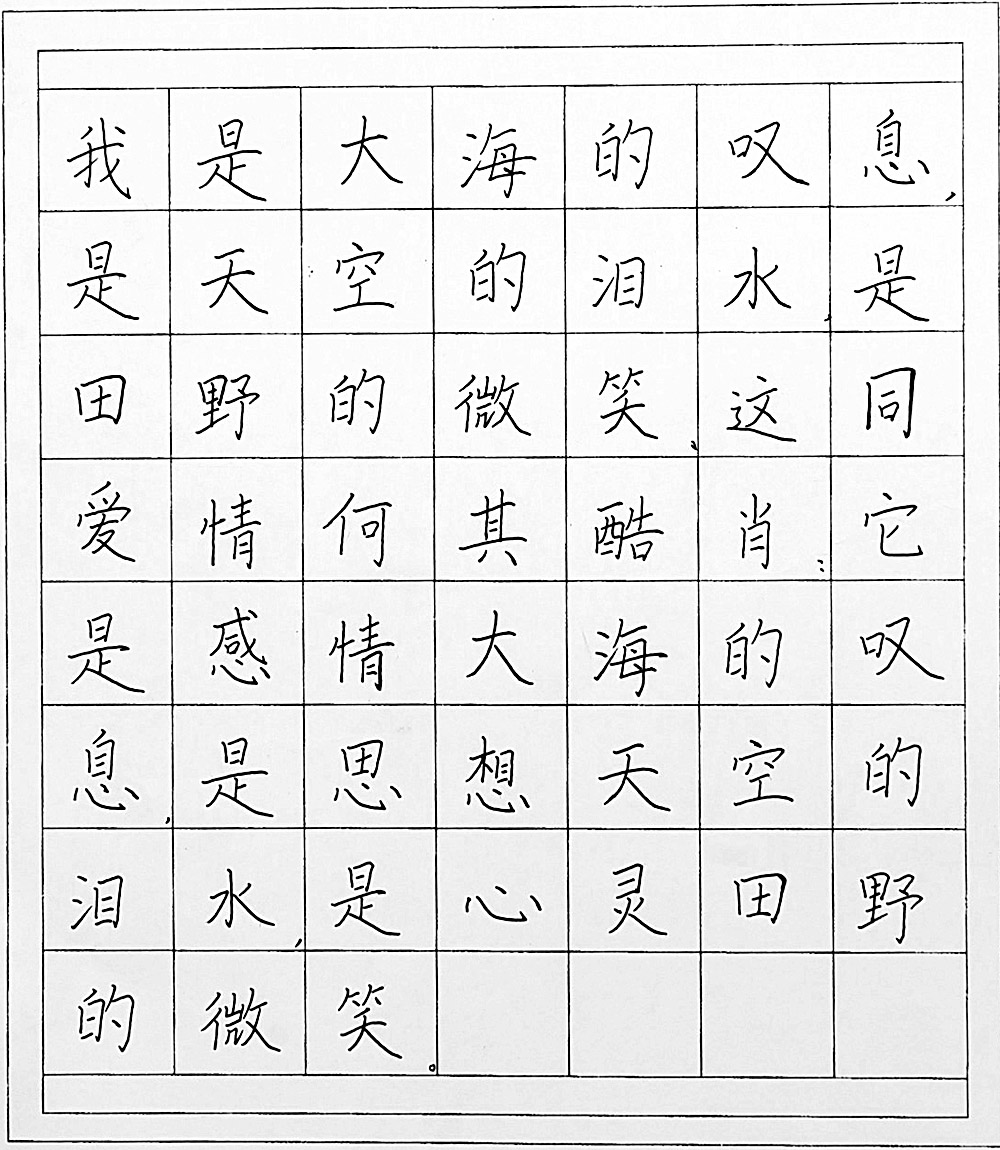 我是大海的叹息，
是天空的泪水，是
田野的微笑、这同
爱情何其酷肖：它
是感情大海的叹
息，是思想天空的
泪水，是心灵田野
的微笑。